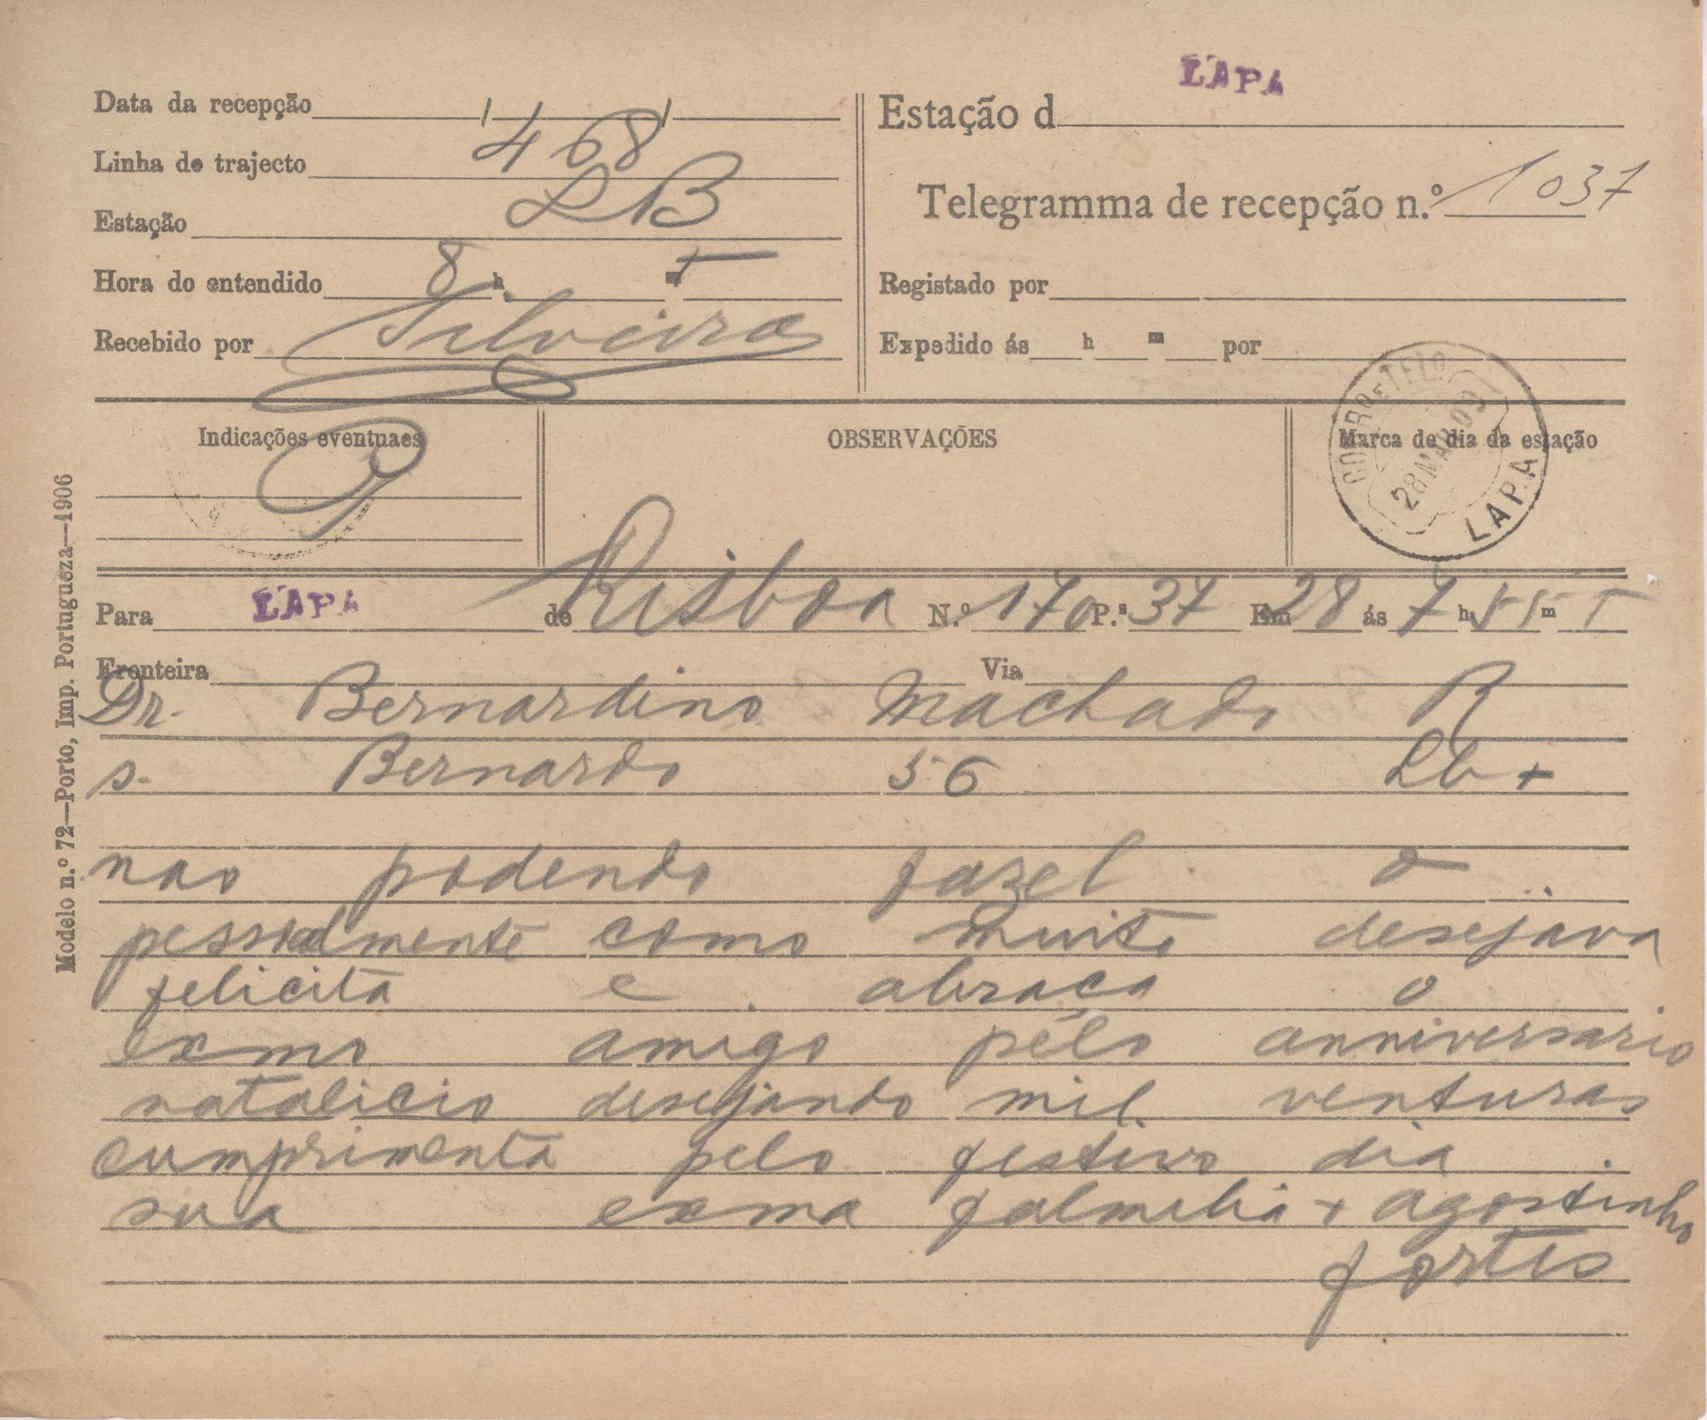 LAPA
Data da recepção
Estação d
Linha de trajecto 468
Telegramma de recepção n.º 1037
Estação LB
Hora do entendido 8 h T
Registado por
Recebido por Silveira
Expedido ás h m por
CORREIO E TELO
28 MAR 09
LAPA
Indicações eventuaes
OBSERVAÇÕES
Marca de dia da estação
Modelo n.º 72—Porto, Imp. Portugueza—1906
Para LAPA de Lisboa N.º 170 P.ˢ 37 Em 28 ás 7 h 55 m T
Fronteira Via
Dr. Bernardino Machado R
s. Bernardo 56 Lb +
nao podendo fazel o
pessoalmente como muito desejava
felicita e abraça o
exmo amigo pelo anniversario
natalicio desejando mil venturas
cumprimenta pelo festivo dia
sua exma falmilia + agostinho
fortes